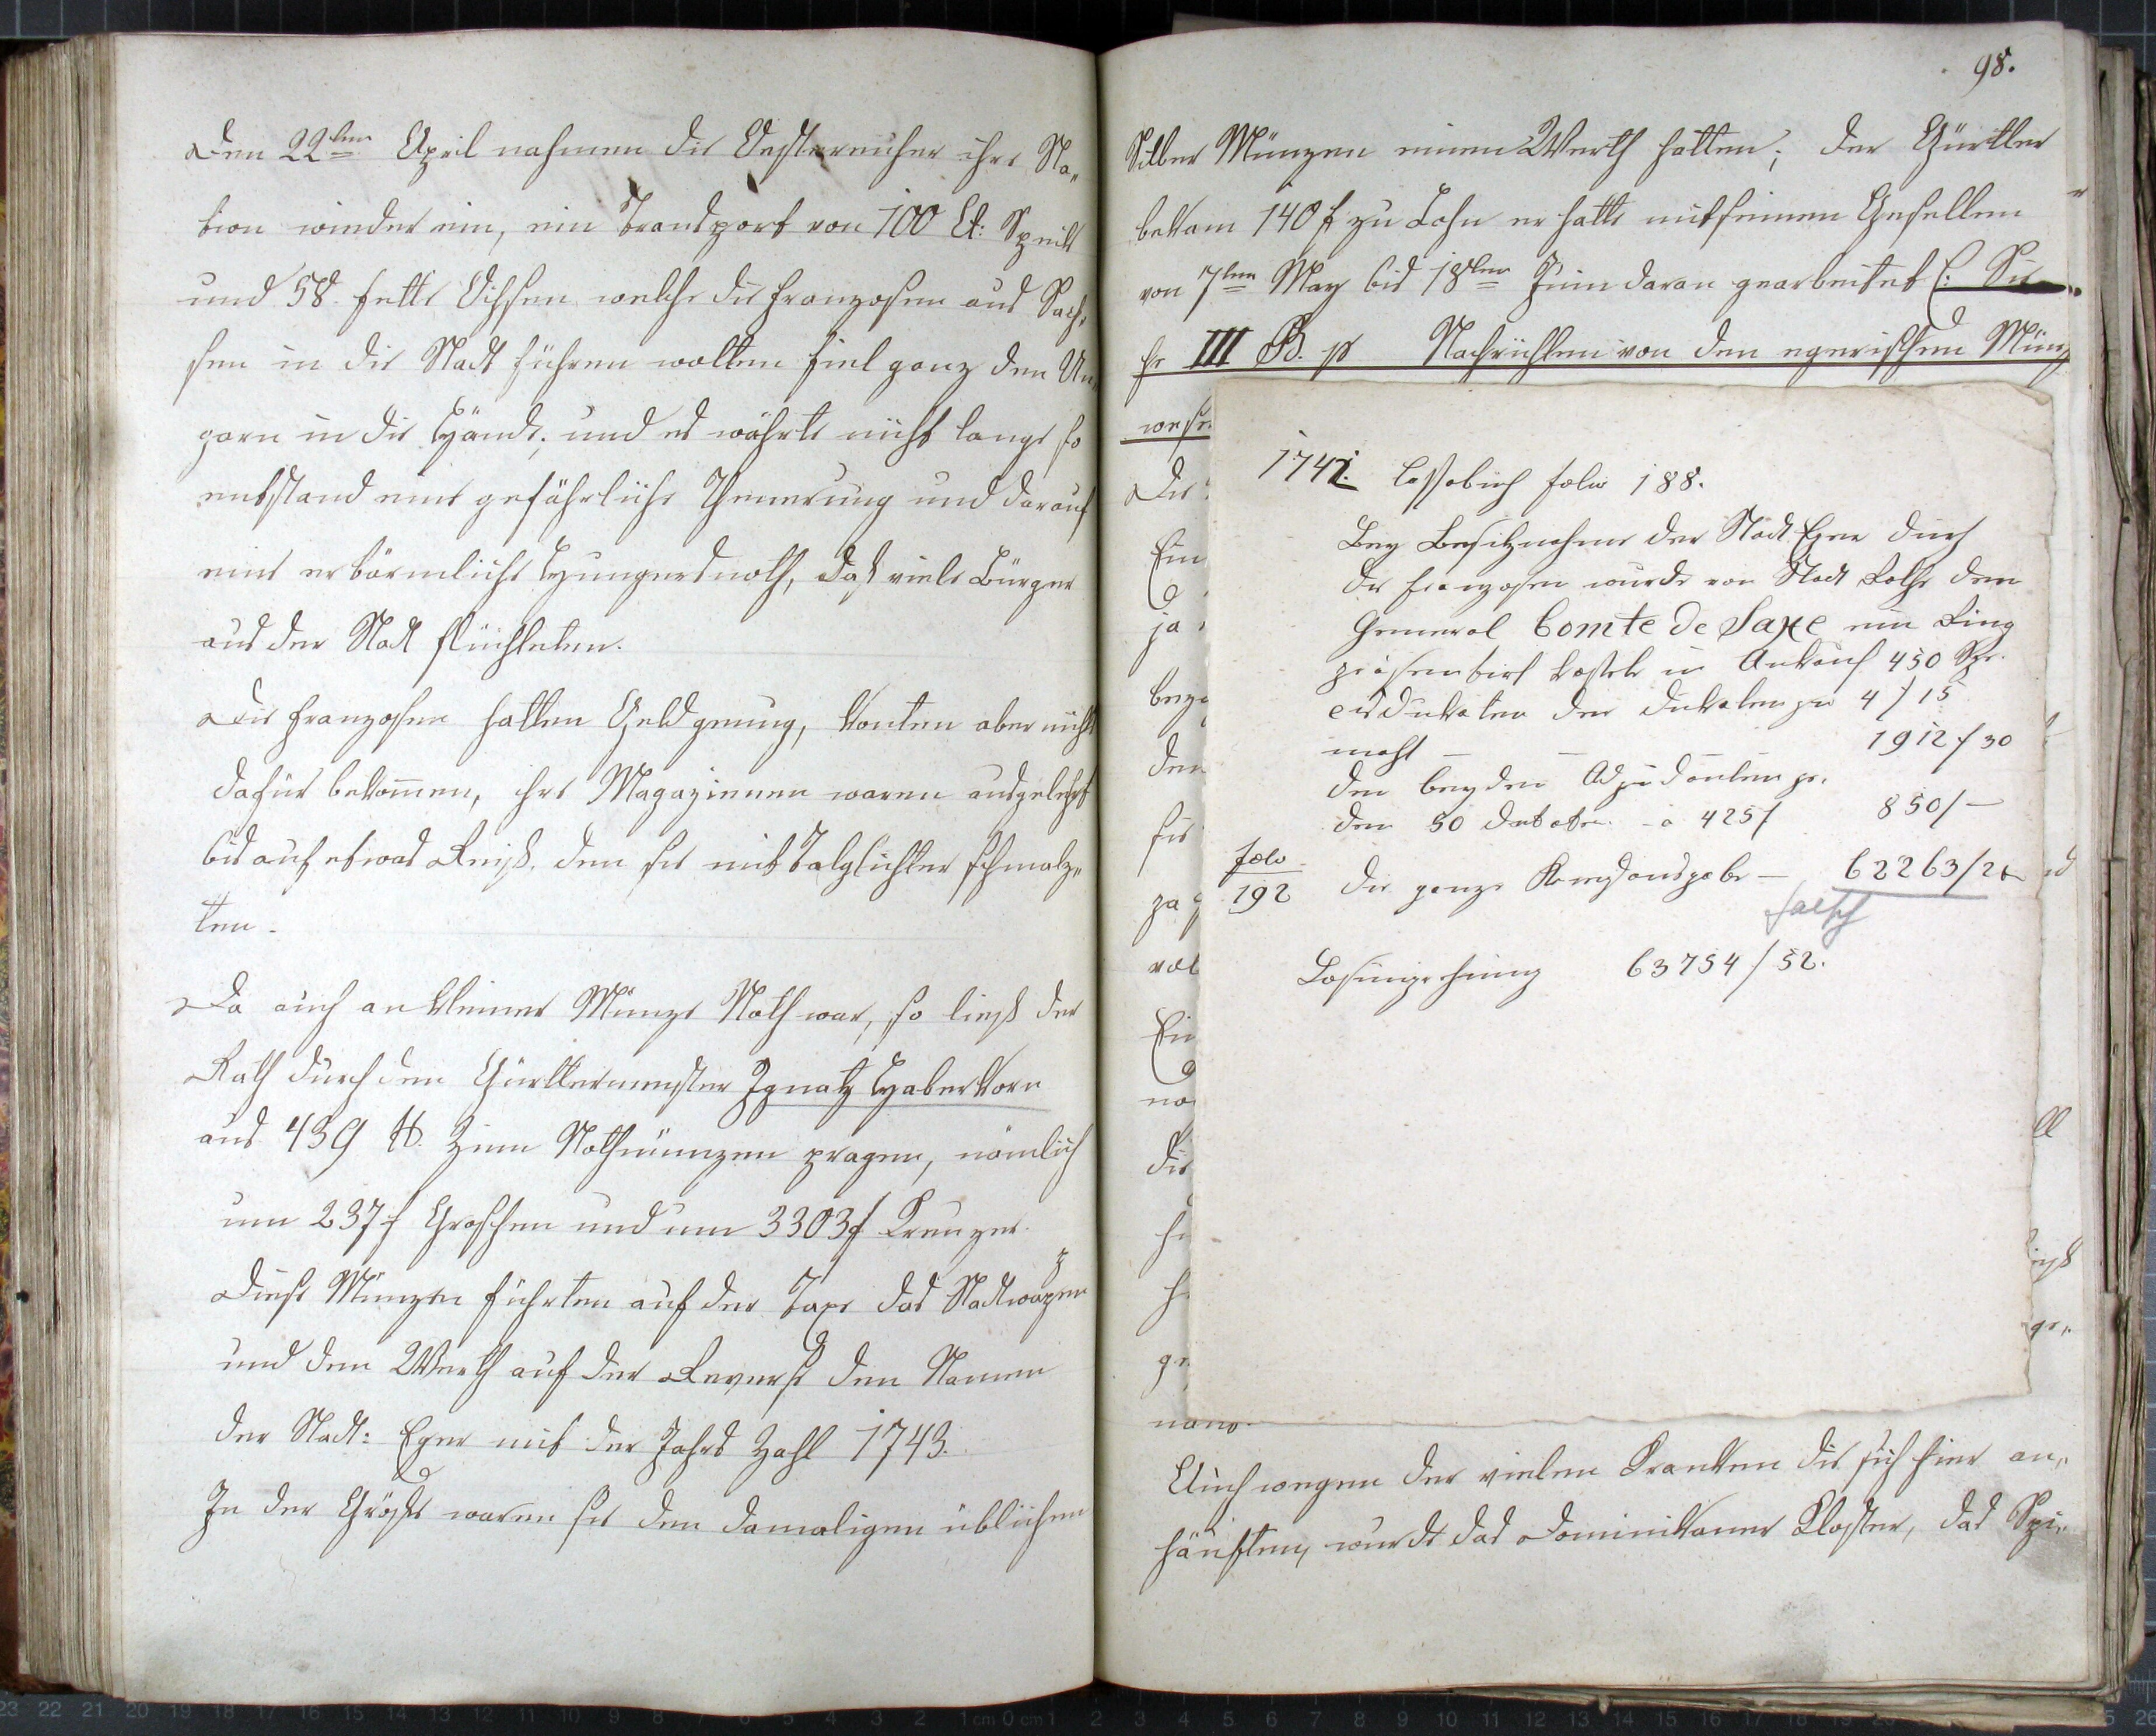 Den 22ten April nahmen die Oesterreicher ihre Sta„
tion wieder ein, ein Transport von 100 Ct: Speik
und 58. fette Ochsen welche die Franzosen aus Sach„
sen in die Stadt führen wolten fiel ganz den Un„
garn in die Hände; und es währte nicht lange so
entstand eine gefährliche Theuerung und darauf
eine erbärmliche Hungersnoth, daß viele Bürger
aus der Stadt flüchteten.
Die Franzosen hatten Geld genung, konten aber nichts
dafür bekommen, ihre Magazienen waren ausgelehrt
bis auf etwas Reiß, den sie mit Talglichter schmalz„
ten.
Da auch an kleiner Münze Noth war, so ließ der
Rath durch den Gürtlermeister Ignatz Haberkorn
aus 439 ℔. Zinn Nothmünzen pragen, nämlich
um 237 f Groschen und um 3303 f Kreuzer.
Diese Münzen führten auf der Taxe das Stadtwapen
und den Werth auf der Reverse den Namen
der Stadt: Eger mit der Jahrs Zahl 1743.
In der Größe waren sie den damaligen üblichen
98.
Silber Münzen einen Werth hatten; der Gürtler
bekam 140 f zu Lohn er hatte mit seinen Gesellen
von 7ten May bis 18ten Juni daran gearbeitet (: Sie„
he III B. p Nachrichten von den egerischen Münz
wese
Die
Ein
ja
bezo
den
für
za
vol
Ein
no
die
hi
h
ge
1742. Losobuch folio 188.
Bey Besitznahme der Stadt Eger durch
die Franzosen wurde von Stadt Rathe dem
General Comte de Saxe ein Ring
präsentirt kostete in Ankauf 450 Spe-
cisdukaten den Dukaten zu 4 f 15
macht — — 1912 f 30
den beyden Adjudanten je.
den 50 Dukaten - a 425 f 850 f —
folio
192 die ganze Kriegsausgabe — 62263 / 24
falsch
Losungrehung 63754 / 52.
Auch wegen der vielen Kranken die sich hier an„
häuften, wurde das Dominikaner Kloster, das Spi„